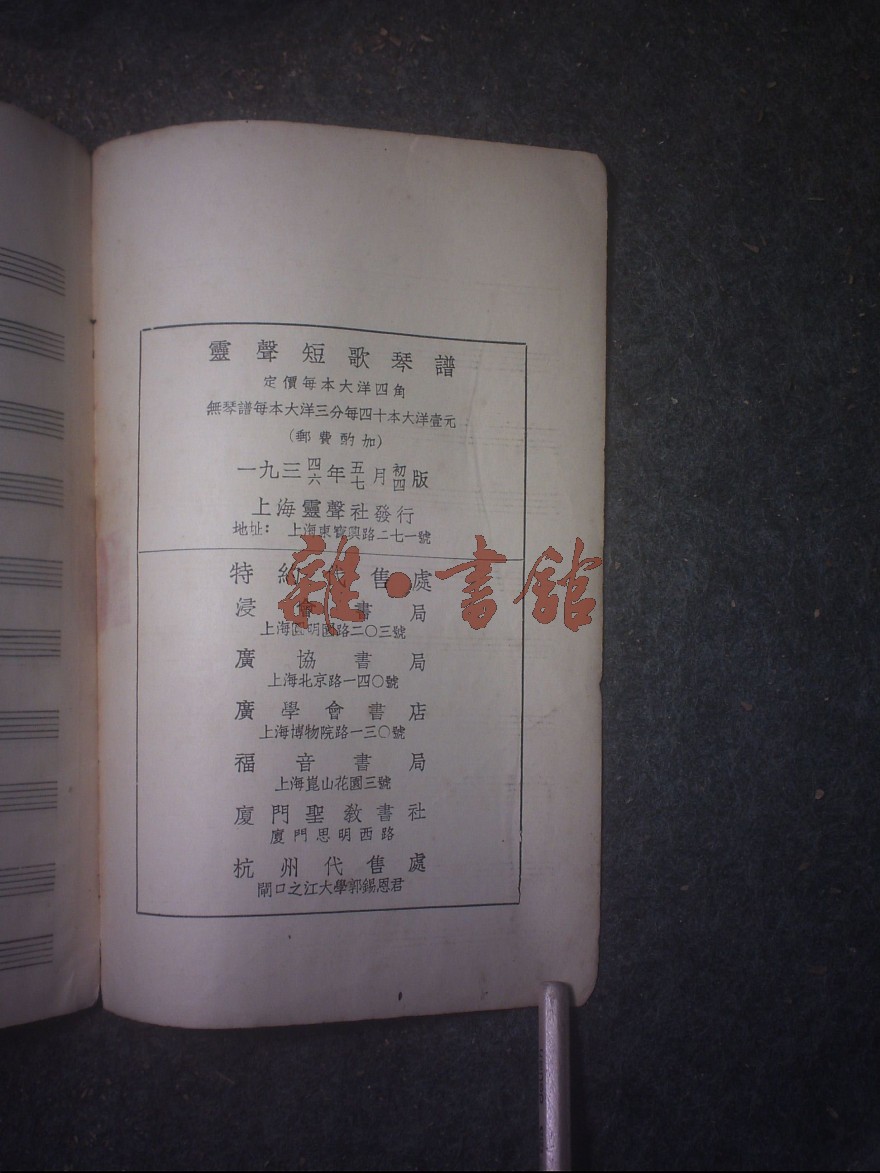 靈聲短歌琴譜
定價每本大洋四角
無琴譜每本大洋三分每四十本大洋壹元
(郵費酌加)
一九三四六年五七月初四版
上海靈聲社發行
地址: 上海東寶興路二七一號
特約代售處
浸會書局
上海圓明園路二〇三號
廣協書局
上海北京路一四〇號
廣學會書店
上海博物院路一三〇號
福音書局
上海崑山花園三號
廈門聖教書社
廈門思明西路
杭州代售處
閘口之江大學郭錫恩君
雜·書館